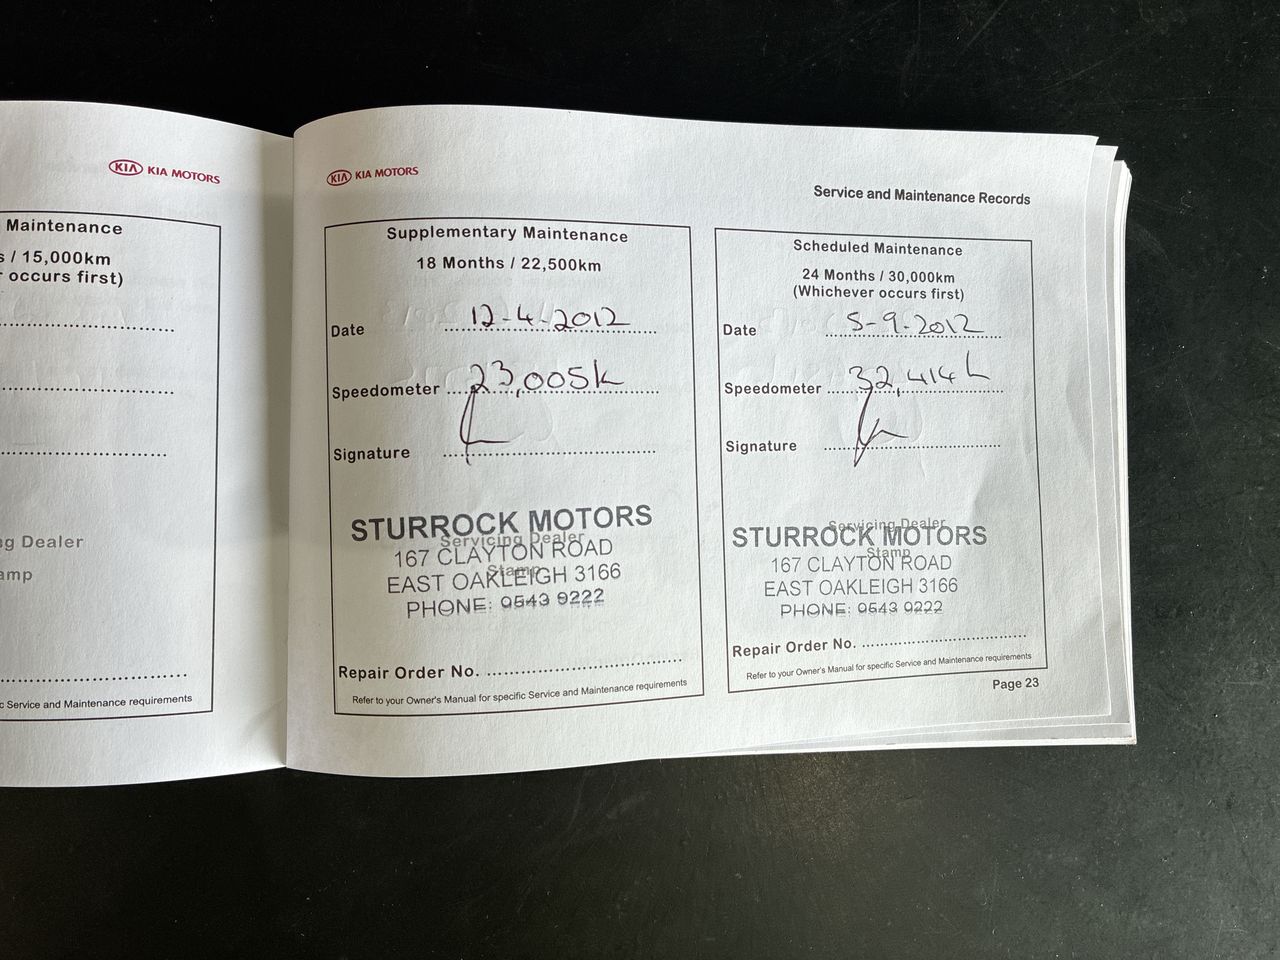 KIA KIA MOTORS
Maintenance
s / 15,000km
r occurs first)
ng Dealer
amp
c Service and Maintenance requirements
KIA KIA MOTORS
Service and Maintenance Records
Supplementary Maintenance
18 Months / 22,500km
Date 12-4-2012
Speedometer 23,005k
Signature
Servicing Dealer
Stamp
STURROCK MOTORS
167 CLAYTON ROAD
EAST OAKLEIGH 3166
PHONE: 9543 9222
Repair Order No.
Refer to your Owner's Manual for specific Service and Maintenance requirements
Scheduled Maintenance
24 Months / 30,000km
(Whichever occurs first)
Date 5-9-2012
Speedometer 32,414k
Signature
Servicing Dealer
Stamp
STURROCK MOTORS
167 CLAYTON ROAD
EAST OAKLEIGH 3166
PHONE: 9543 9222
Repair Order No.
Refer to your Owner's Manual for specific Service and Maintenance requirements
Page 23